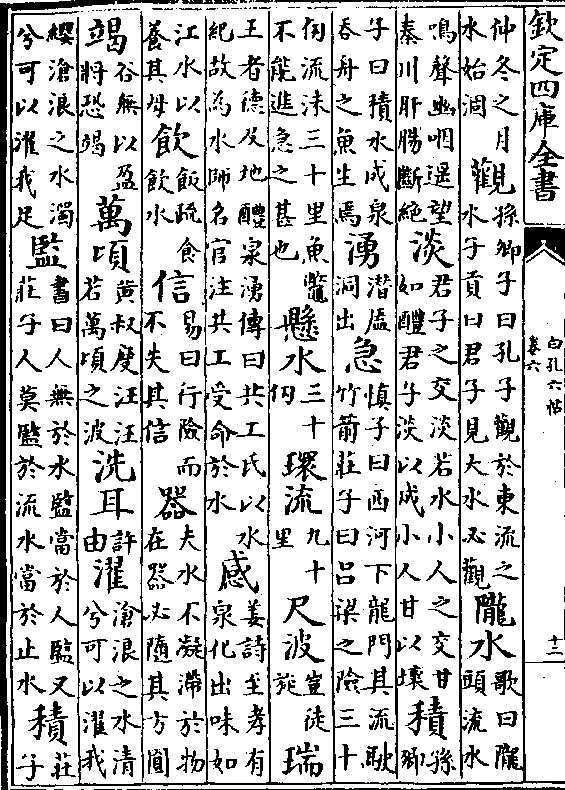 欽定四庫全書
白孔六帖
卷六
十二
仲冬之月水始涸觀孫卿子曰孔子觀於東流之水子貢曰君子見大水必觀隴水歌曰隴頭流水
鳴聲幽咽遥望秦川肝腸斷絶淡君子之交淡若水小人之交甘如醴君子淡以成小人甘以壞積孫卿
子曰積水成泉吞舟之魚生焉湧潜洞出急慎子曰西河下龍門其流駛竹箭莊子曰吕梁之險三十
仞流沫三十里魚鼈不能進急之甚也懸水三十仞環流九十里尺波豈徒旋瑞
王者德及地醴泉湧傳曰共工氏以水紀故為水師名官注共工受命於水感姜詩至孝有泉化出味如
江水以養其母飲飯疏食飲水信易曰行險而不失其信器夫水不凝滯於物在器必隨其方圓
竭谷無以盈將恐竭萬頃黄叔度汪汪若萬頃之波洗耳許由濯滄浪之水清兮可以濯我
纓滄浪之水濁兮可以濯我足監書曰人無於水監當於人監又莊子人莫監於流水當於止水積莊子